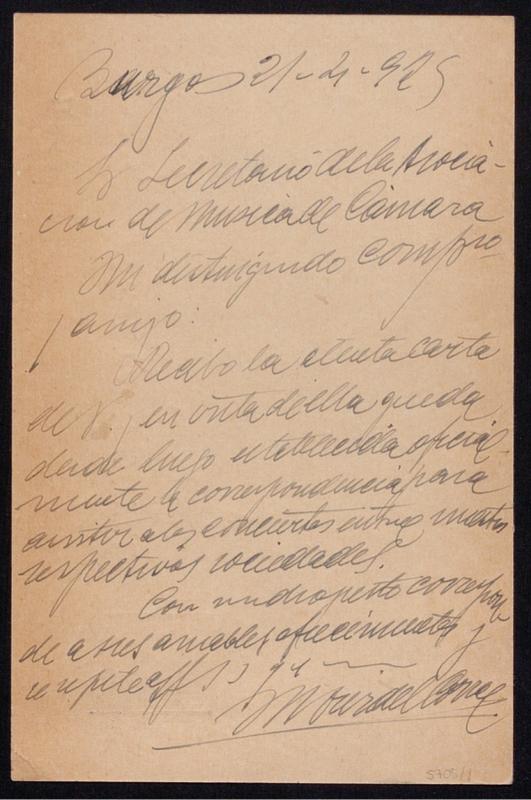 Burgos 21-4-925
Sr Secretario de la Asocia-
cion de Musica de Cámara
Mi distinguido compro
y amigo:
Recibo la atenta carta
de V. y en vista de ella queda
desde luego establecida oficial-
mente la correspondencia para
asistir a los conciertos entre nuestras
respectivas sociedades.
Con mucho gusto correspon-
de a sus amables ofrecimientos y
se repite aff s s
5705/1